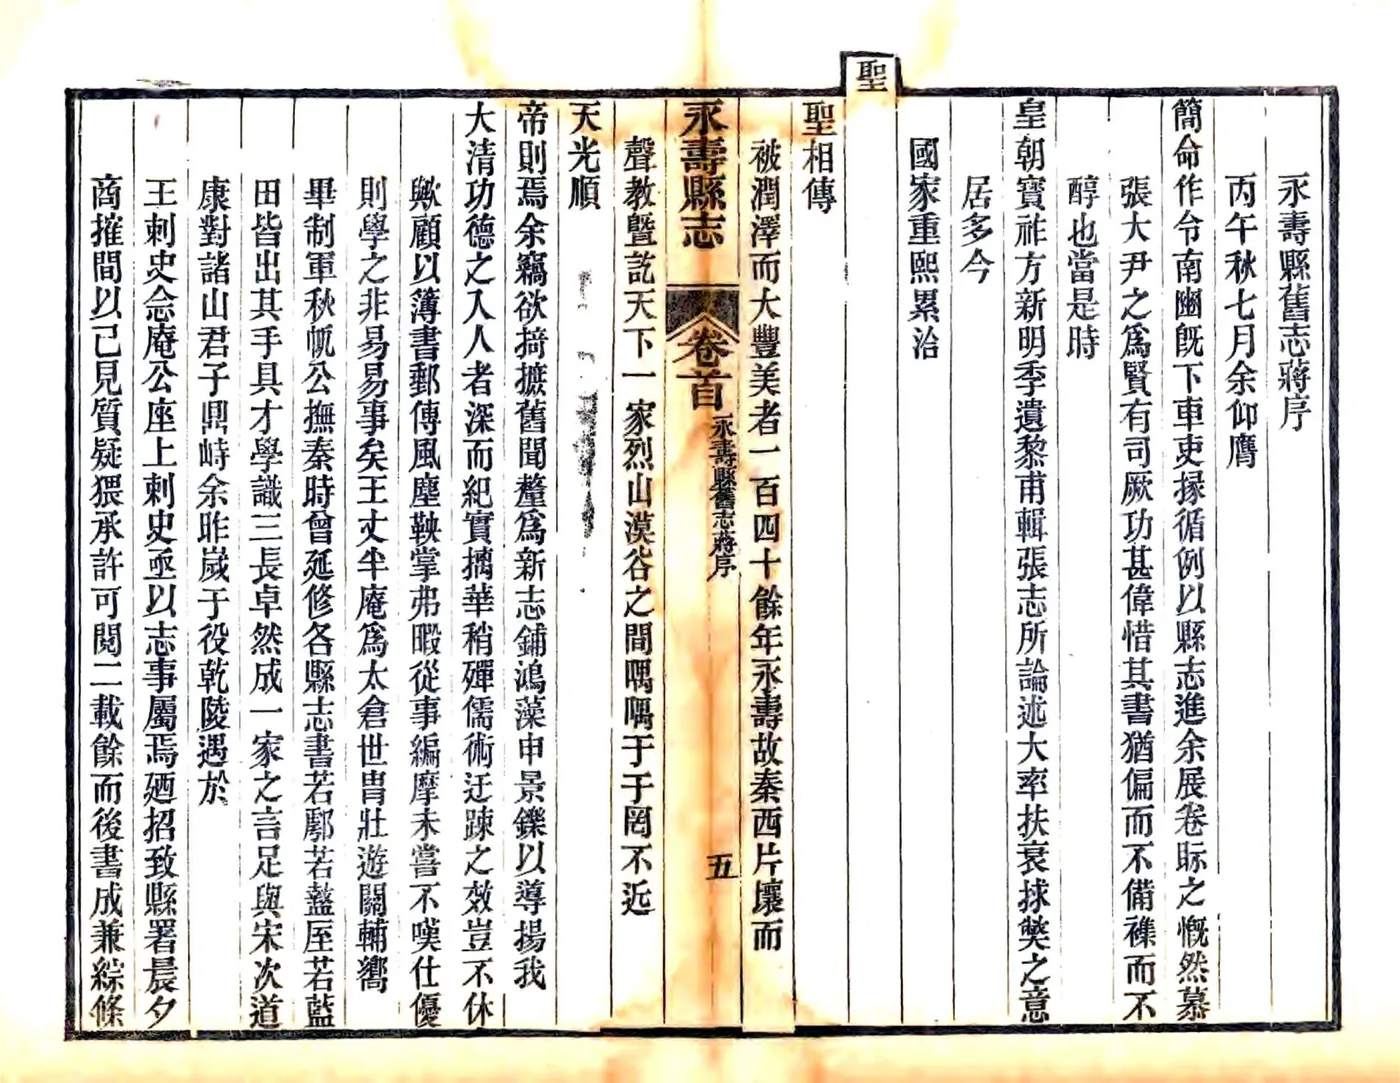 永壽縣舊志蔣序
丙午秋七月余仰膺
簡命作令南豳旣下車吏掾循例以縣志進余展卷眎之慨然慕
張大尹之爲賢有司厥功甚偉惜其書猶偏而不備襍而不
醇也當是時
皇朝寶祚方新明季遺黎甫輯張志所論述大率扶衰捄獘之意
居多今
國家重熙累洽
聖
聖相傳
被潤澤而大豐美者一百四十餘年永壽故秦西片壤而
永壽縣志
卷首
永壽縣舊志蔣序
五
聲教曁訖天下一家烈山漠谷之間喁喁于于罔不近
天光順
帝則焉余竊欲掎摭舊聞釐爲新志鋪鴻藻申景鑠以導揚我
大清功德之入人者深而紀實摛華稍殫儒術迂疎之效豈不休
歟顧以簿書郵傳風塵鞅掌弗暇從事編摩未嘗不嘆仕優
則學之非易易事矣王丈半庵爲太倉世胄壯遊關輔嚮
畢制軍秋帆公撫秦時曾延修各縣志書若鄠若盩厔若藍
田皆出其手具才學識三長卓然成一家之言足與宋次道
康對諸山君子鼎峙余昨嵗于役乾陵遇於
王刺史念庵公座上刺史亟以志事屬焉廼招致縣署晨夕
商搉間以己見質疑猥承許可閱二載餘而後書成兼綜條